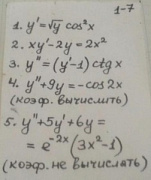 1-7
1. y' = √y cos²x
2. xy' - 2y = 2x²
3. y'' = (y' - 1) ctg x
4. y'' + 9y = -cos 2x
(коэф. вычислить)
5. y'' + 5y' + 6y =
= e^{-2x} (3x² - 1)
(коэф. не вычислять)